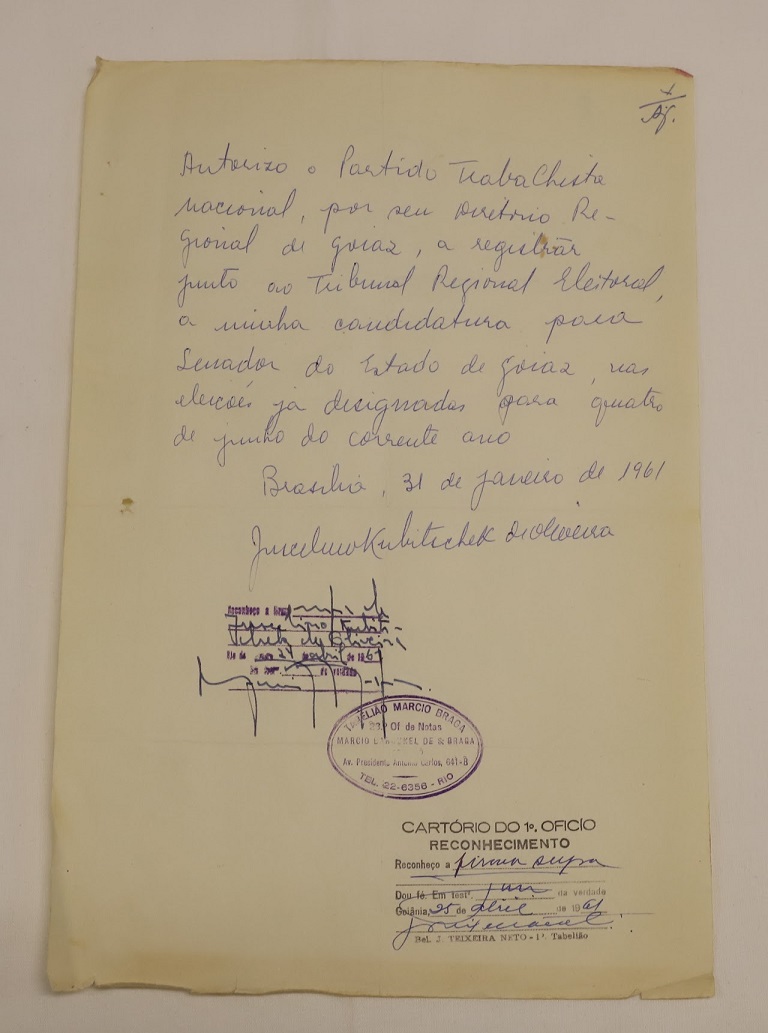 Autorizo o Partido Trabalhista
nacional, por seu Diretório Re-
gional de Goiaz, a registrar
junto ao Tribunal Regional Eleitoral,
a minha candidatura para
Senador do Estado de Goiaz, nas
eleições já designadas para quatro
de junho do corrente ano
Brasília, 31 de janeiro de 1961
Juscelino Kubitschek de Oliveira
Reconheço a firma
Juscelino Kubits-
chek de Oliveira
Rio de 24 de abril de 1961
da verdade
TABELIÃO MARCIO BRAGA
23º Of de Notas
MARCIO BRAGA
Av. Presidente Antonio Carlos, 641-B
TEL. 22-6356 - RIO
CARTÓRIO DO 1º. OFICIO
RECONHECIMENTO
Reconheço a firma supra
Dou fé. Em testº. da verdade
Goiânia, 25 de abril de 1961
Bel. J. TEIXEIRA NETO - 1º Tabelião